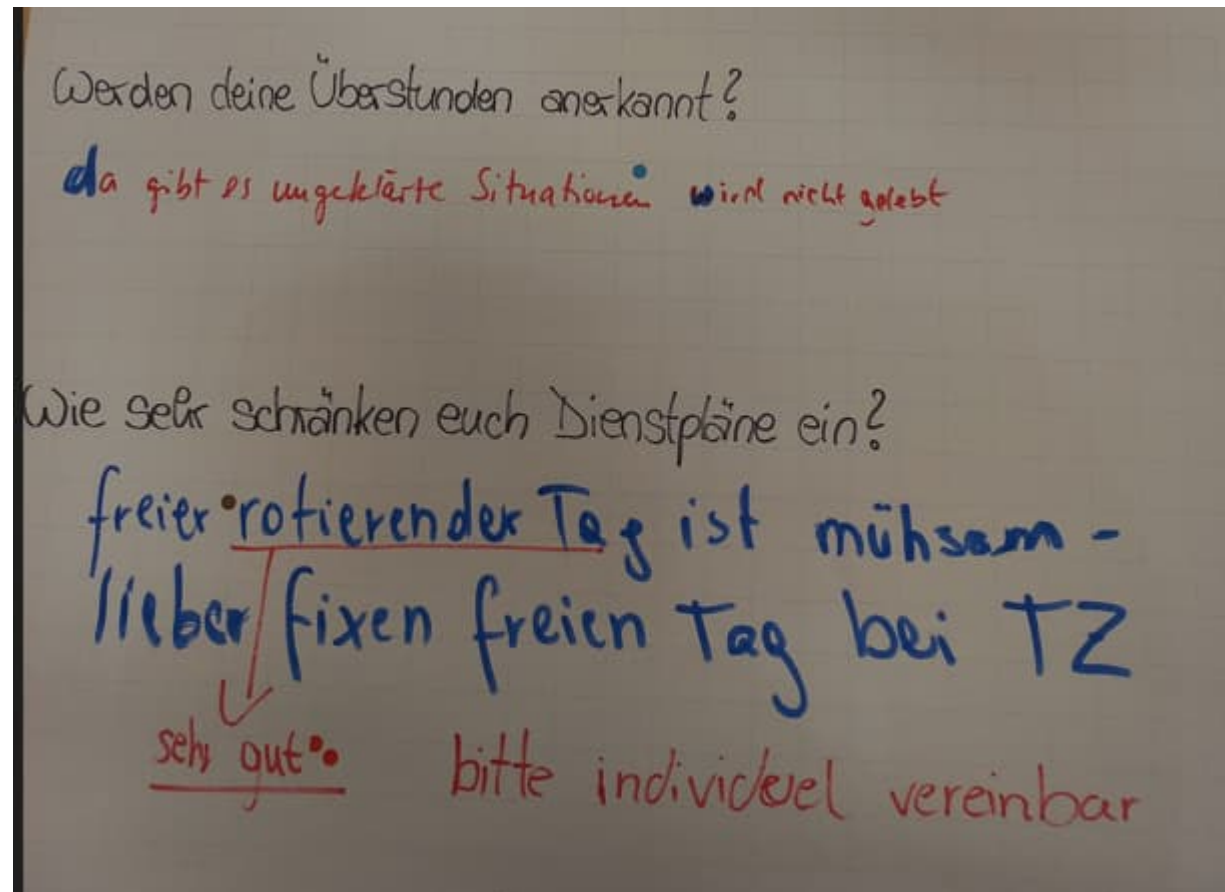 Werden deine Überstunden anerkannt?
da gibt es ungeklärte Situationen wird nicht gelebt
Wie sehr schränken euch Dienstpläne ein?
freier rotierender Tag ist mühsam -
lieber fixen freien Tag bei TZ
sehr gut bitte individuel vereinbar